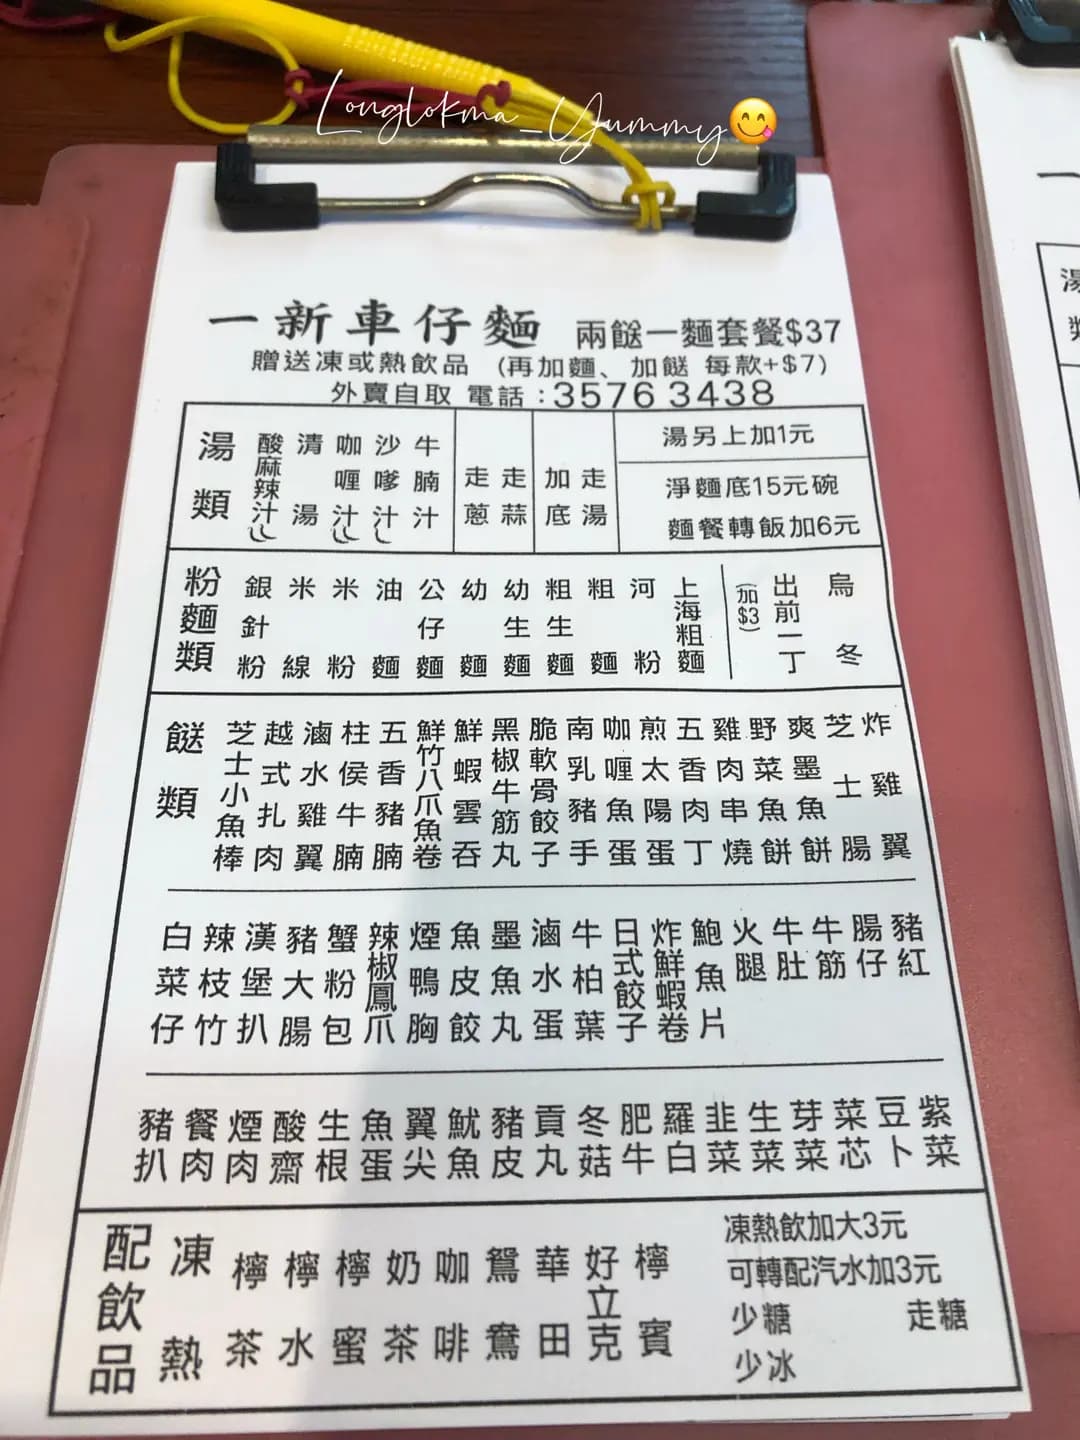 Longlokma_Yummy😋
一新車仔麵 兩餸一麵套餐$37
贈送凍或熱飲品 (再加麵、加餸 每款+$7)
外賣自取 電話:3576 3438
湯類
酸麻辣汁
清湯
咖喱汁
沙嗲汁
牛腩汁
走蔥
走蒜
加底
走湯
湯另上加1元
淨麵底15元碗
麵餐轉飯加6元
粉麵類
銀針粉
米線
米粉
油麵
公仔麵
幼麵
幼生麵
粗生麵
粗麵
河粉
上海粗麵
(加$3)
出前一丁
烏冬
餸類
芝士小魚棒
越式扎肉
滷水雞翼
柱侯牛腩
五香豬腩
鮮竹八爪魚卷
鮮蝦雲吞
黑椒牛筋丸
脆軟骨餃子
南乳豬手
咖喱魚蛋
煎太陽蛋
五香肉丁
雞肉串燒
野菜魚餅
爽墨魚餅
芝士腸
炸雞翼
白菜仔
辣枝竹
漢堡扒
豬大腸
蟹粉包
辣椒鳳爪
煙鴨胸
魚皮餃
墨魚丸
滷水蛋
牛柏葉
日式餃子
炸鮮蝦卷
鮑魚片
火腿
牛肚
牛筋
腸仔
豬紅
豬扒
餐肉
煙肉
酸齋
生根
魚蛋
翼尖
魷魚
豬皮
貢丸
冬菇
肥牛
羅白
韭菜
生菜
芽菜
菜芯
豆卜
紫菜
配飲品
凍
熱
檸茶
檸水
檸蜜
奶茶
咖啡
鴛鴦
華田
好立克
檸賓
凍熱飲加大3元
可轉配汽水加3元
少糖 走糖
少冰